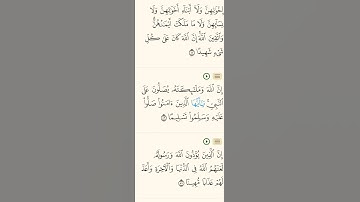 إِخْوَٰنِهِنَّ وَلَآ أَبْنَآءِ أَخَوَٰتِهِنَّ وَلَا
نِسَآئِهِنَّ وَلَا مَا مَلَكَتْ أَيْمَٰنُهُنَّ
وَٱتَّقِينَ ٱللَّهَ إِنَّ ٱللَّهَ كَانَ عَلَىٰ كُلِّ
شَىْءٍ شَهِيدًا
إِنَّ ٱللَّهَ وَمَلَٰٓئِكَتَهُۥ يُصَلُّونَ عَلَى
ٱلنَّبِىِّ يَٰٓأَيُّهَا ٱلَّذِينَ ءَامَنُوا۟ صَلُّوا۟
عَلَيْهِ وَسَلِّمُوا۟ تَسْلِيمًا
إِنَّ ٱلَّذِينَ يُؤْذُونَ ٱللَّهَ وَرَسُولَهُۥ
لَعَنَهُمُ ٱللَّهُ فِى ٱلدُّنْيَا وَٱلْءَاخِرَةِ وَأَعَدَّ
لَهُمْ عَذَابًا مُّهِينًا